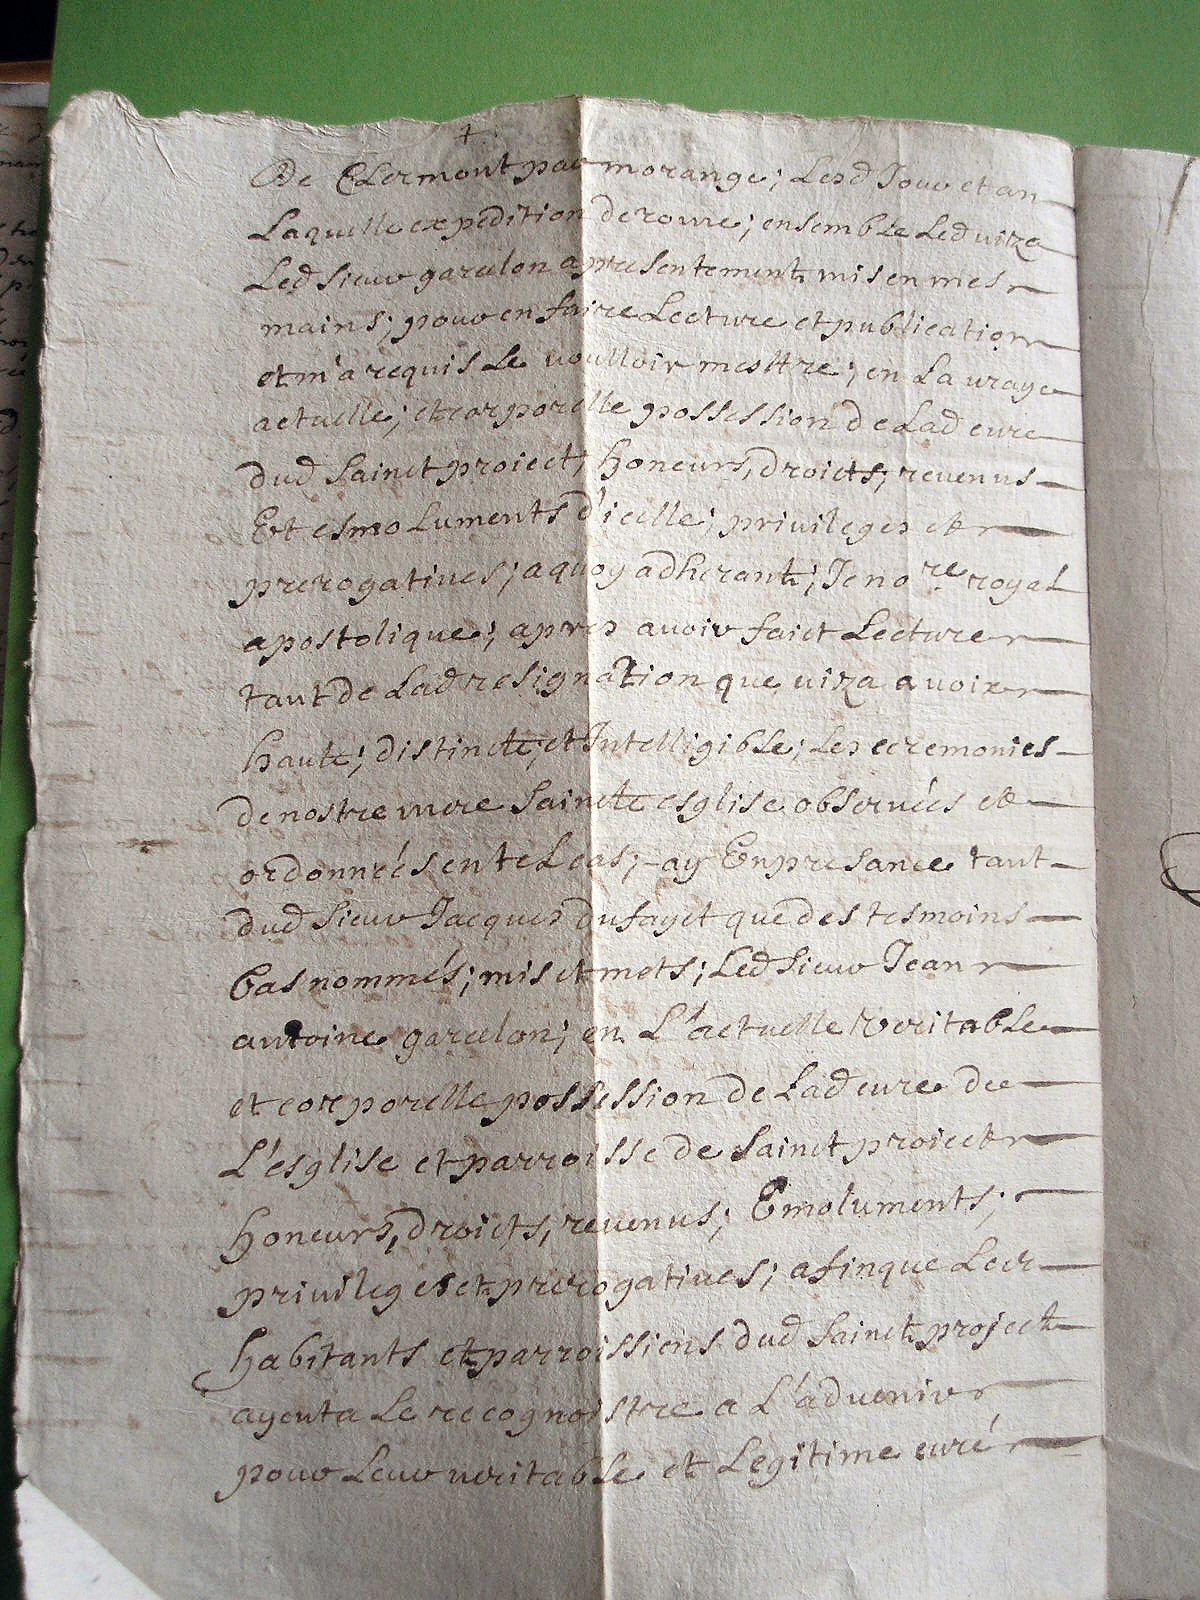 +
De Clermont par morange; Lesd Jour et an
Laquelle expedition de rome; ensemble Led viza
Led sieur garcelon a presentement mis en mes
mains; pour en faire Lecture et publication
et m'a requis Le voulloir mesttre; en La vraye
actuelle; et corporelle possession de Lad cure
dud Sainct proiect, honeurs, droicts; revenus
Et esmoluments d'icelle; privileges et
prerogatives; a quoy adherant; Je no.re royal
apostolique; apres avoir faict Lecture
tant de Lad resignation que viza a voix
haute; distincte; et Intelligible; Les ceremonies
de nostre mere saincte esglise observées et
ordonnées en tel cas; ay En presance tant
dud sieur Jacques Dufayet que des tesmoins
bas nommés; mis et mets; Led sieur Jean
antoine garcelon; en L'actuelle veritable
et corporelle possession de Lad cure de
L'esglise et parroisse de Sainct proiect
honeurs, droicts, revenus; Emoluments;
privileges et prerogatives; afinque Les
habitants et parroissiens dud sainct project
ayent a Le recognoistre a L'advenir
pour Leur veritable et Legitime curé